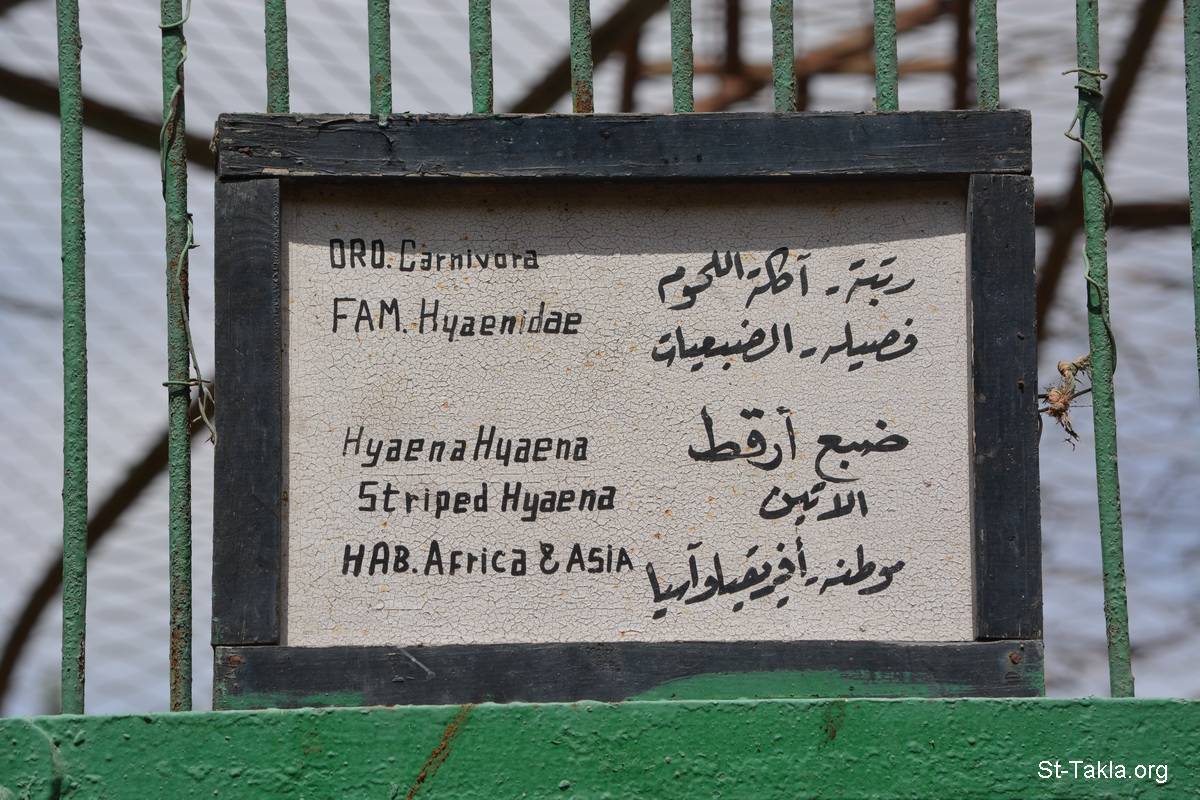 ORD. Carnivora
FAM. Hyaenidae
Hyaena Hyaena
Striped Hyaena
HAB. Africa & ASIA
رتبة - آكلة اللحوم
فصيله - الضبعيات
ضبع أرقط
الاتين
موطنه - أفريقيا وآسيا
St-Takla.org